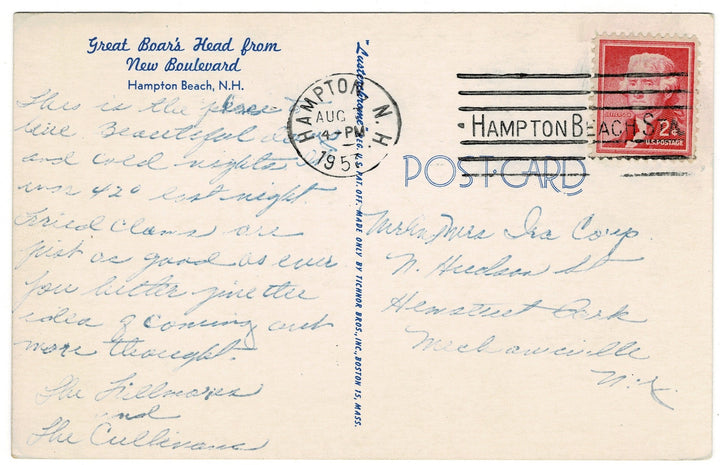 Great Boar's Head from
New Boulevard
Hampton Beach, N.H.
This is the place to
live. Beautiful days
and cold nights. It
was 42° last night
Fried Clams are
just as good as ever
You better give the
idea of coming out
more thought.
The Fillmores
and
The Cullinans
"Lusterchrome" REG. U.S. PAT. OFF. MADE ONLY BY TICHNOR BROS., INC., BOSTON 15, MASS.
HAMPTON N.H.
AUG
4-PM
195
HAMPTON BEACH
2¢
U.S. POSTAGE
POST CARD
Mr & Mrs Ira
N. Hudson St
Park
Mechanicville
N.Y.